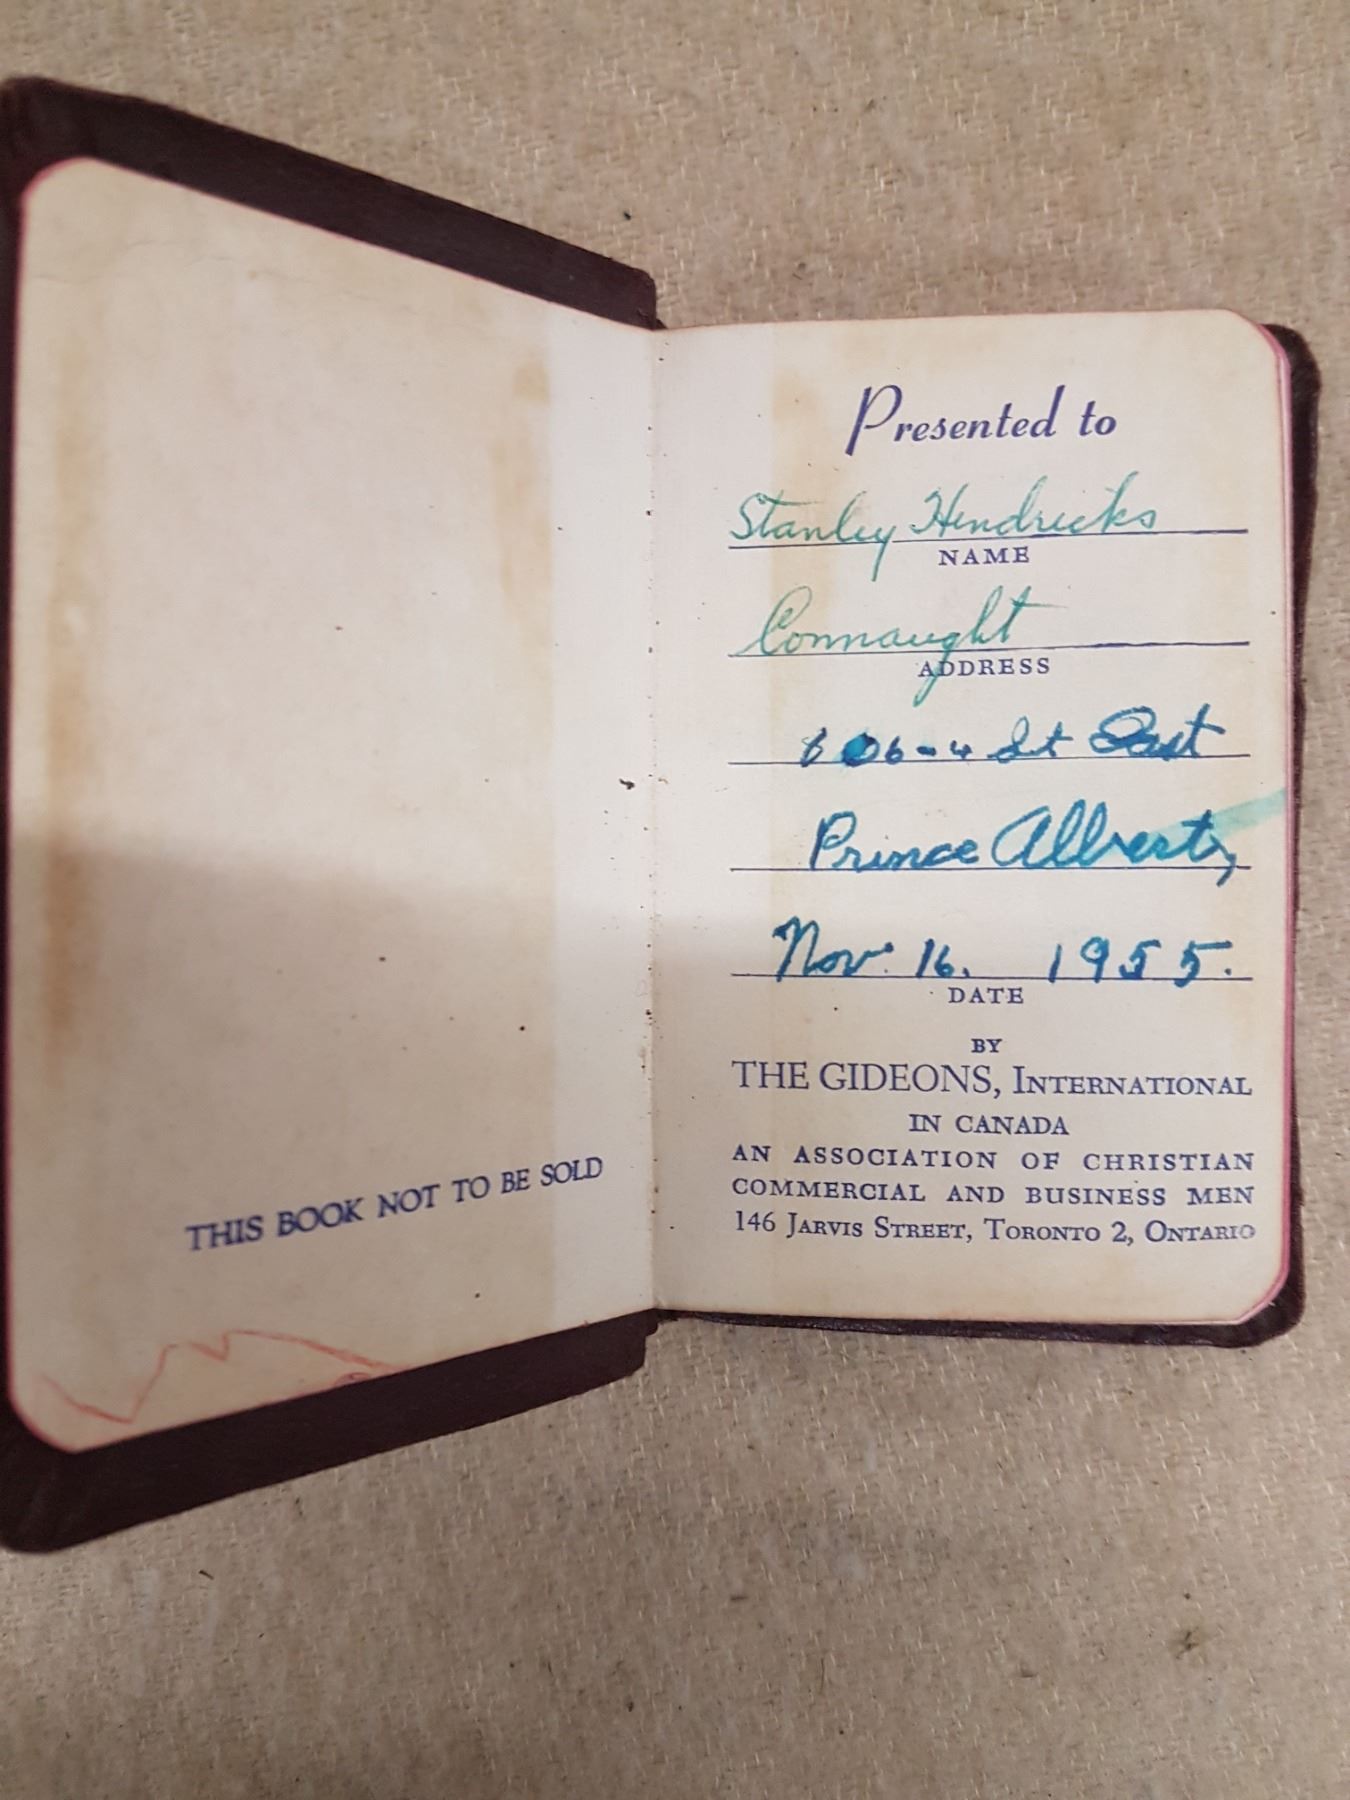 THIS BOOK NOT TO BE SOLD
Presented to
Stanley Hendricks
NAME
Connaught
ADDRESS
606-4 St East
Prince Albert,
Nov. 16. 1955.
DATE
BY
THE GIDEONS, INTERNATIONAL
IN CANADA
AN ASSOCIATION OF CHRISTIAN
COMMERCIAL AND BUSINESS MEN
146 JARVIS STREET, TORONTO 2, ONTARIO